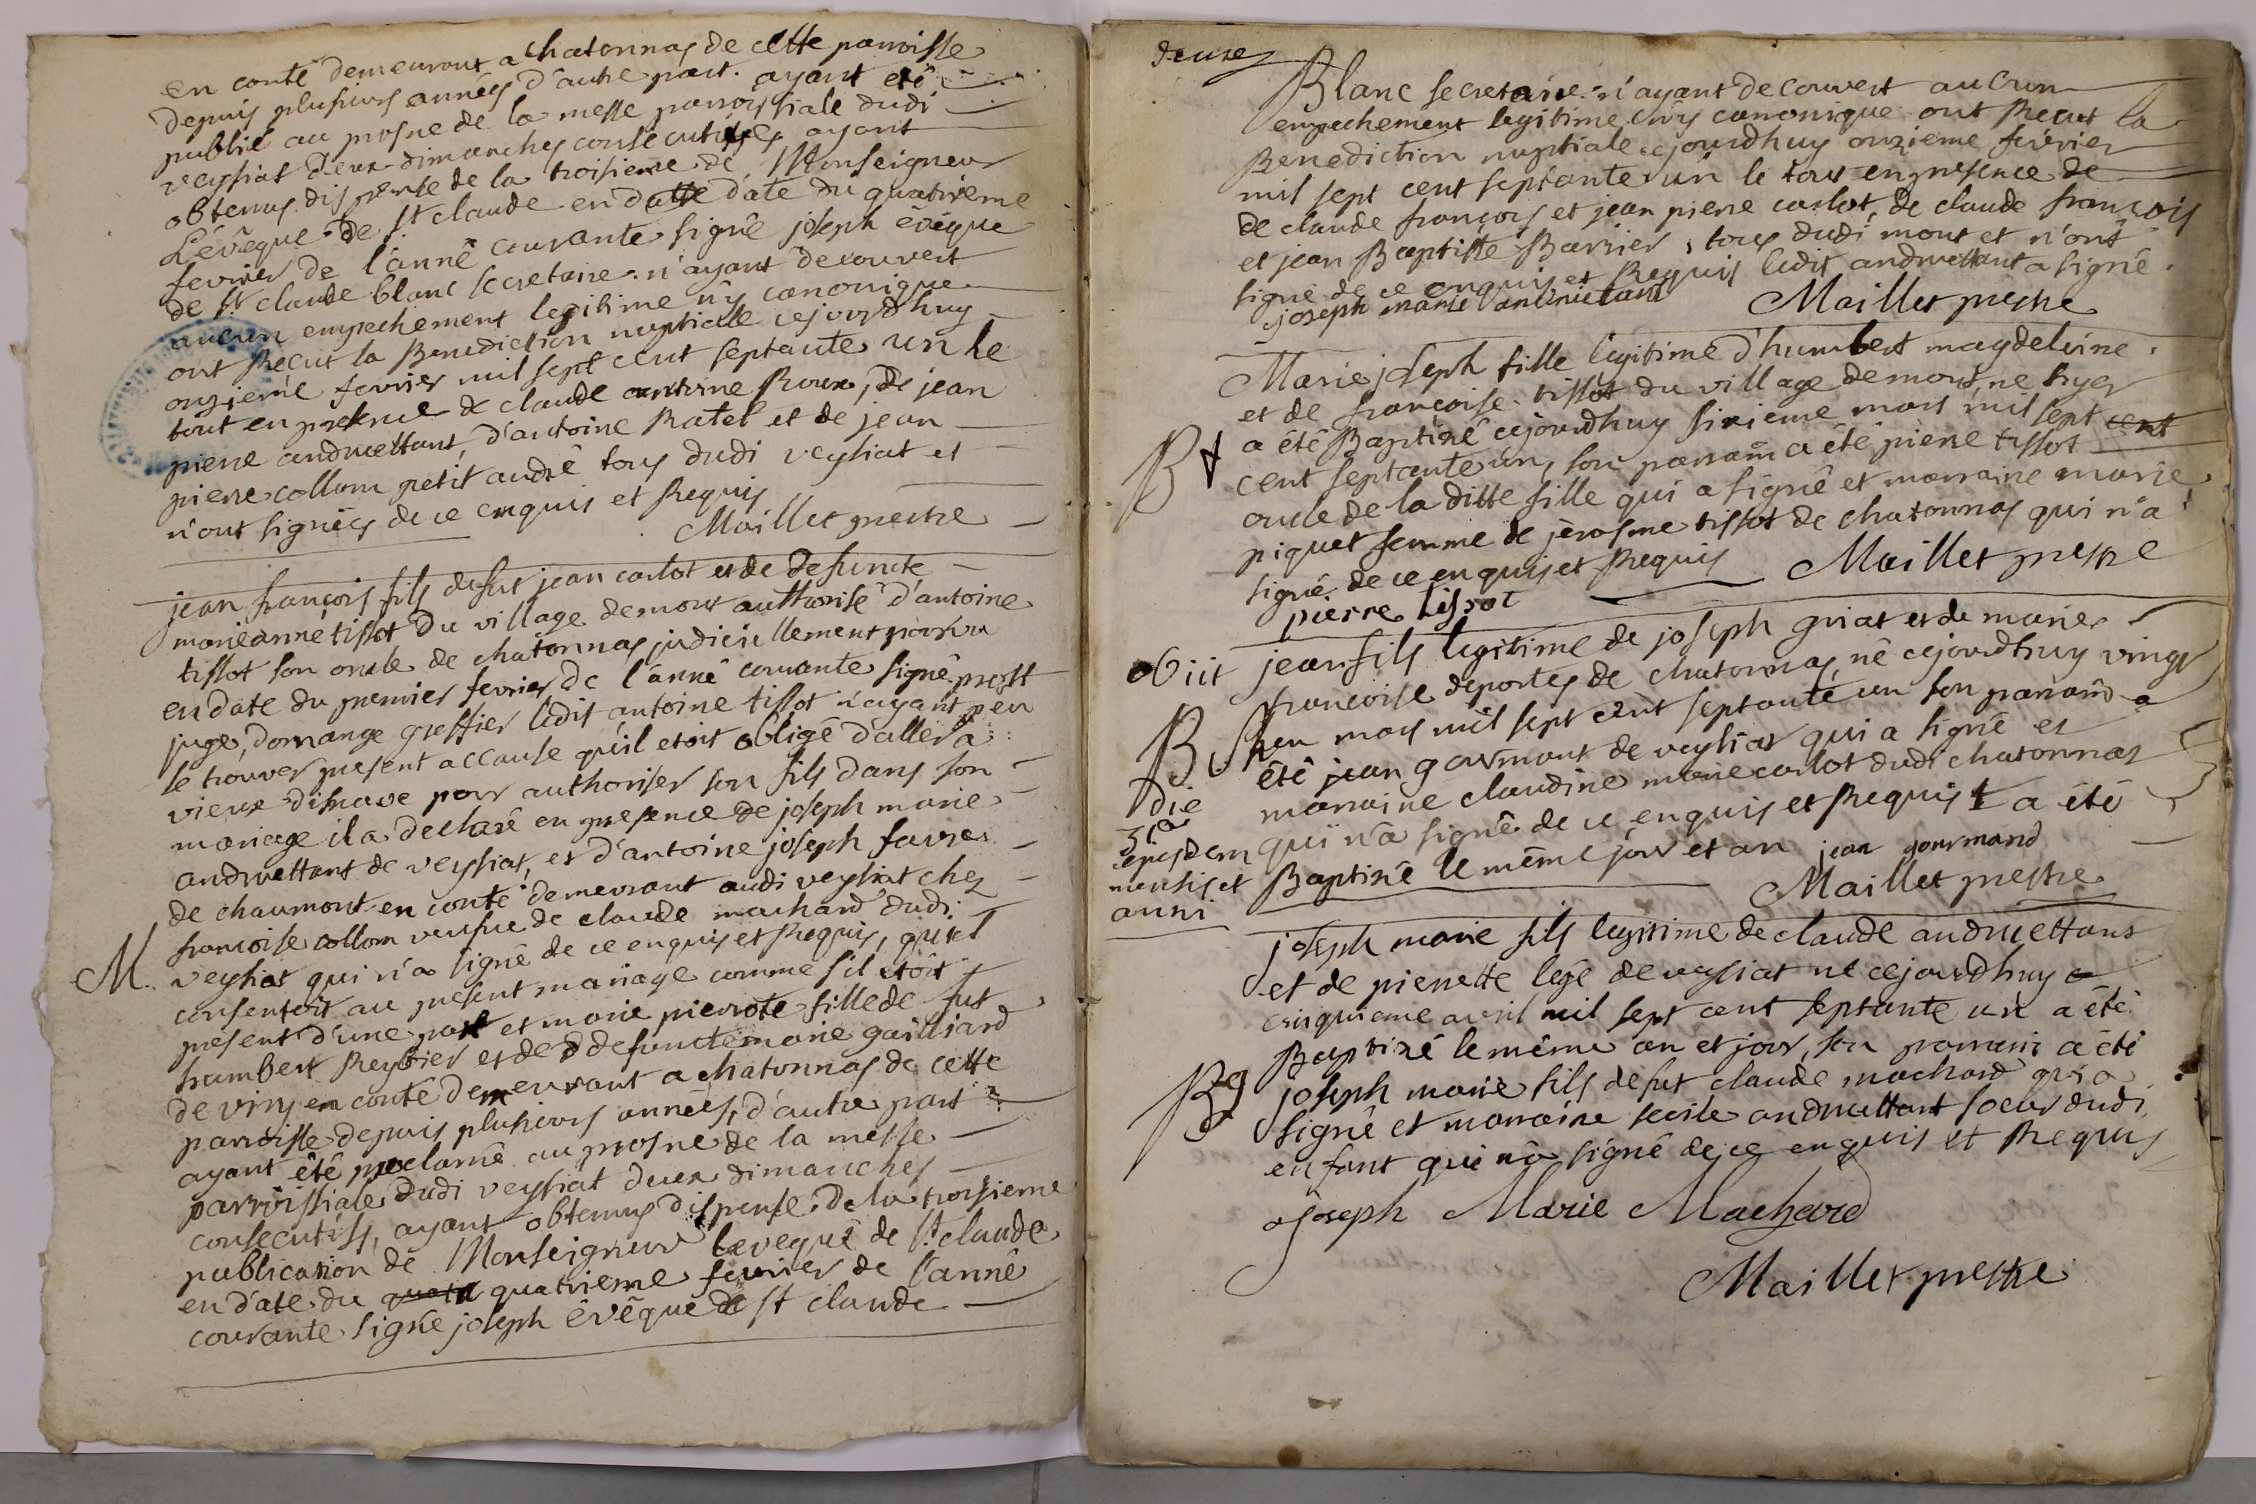 en conté demeurant a Chatonnas de cette parroisse
depuis plusieurs années d'autre part. ayant été
publié au prosne de la messe parroissiale dudi
veyssiat deux dimanches consecutifs ayant
obtenus dispense de la troisieme de Monseigneur
L'évêque de St claude en datte d'ate du quatrieme
fevrier de l'anné courante signé joseph évêque
de St claude blanc secretaire. n'ayant decouvert
aucun empechement legitime n'y canonique
ont Reçut la Benediction nuptiale cejourdhuy
onzieme fevrier mil sept cent septante un le
tout en presence de claude antoine Roux, de jean
pierre andruettant, d'antoine Ratel et de jean
pierre collom petit andré tous dudi veysiat et
n'ont signées de ce enquis et Requis
Maillet prestre
jean françois fils de fut jean carlot et de defuncte
marieanne tissot du village de mont authorisé d'antoine
tissot son oncle de chatonnas judiciellement pourvu
en date du premier fevrier de l'anné courante signé prost
juge, domange greffier ledit antoine tissot n'ayant peu
se trouver present a cause qu'il etoit obligé d'aller a
vieux d'isnave pour authoriser son fils dans son
mariage il a declaré en presence de joseph marie
andruettant de veyssiat, et d'antoine joseph favre
de chaumont en conté demeurant audi veysiat chez
francoise collom veufve de claude machard dudi
M. veysiat qui n'a signé de ce enquis et Requis, qu'il
consentoit au present mariage comme s'il etoit
present d'une part et marie pierrote fille de fut
humbert Reybier et de defuncte marie gailliard
de viry en conté demeurant a chatonnas de cette
parroisse depuis plusieurs années, d'autre part
ayant été proclamé au prosne de la messe
parroissiale dudi veysiat deux dimanches
consecutifs, ayant obtenus dispense de la troisieme
publication de Monseigneur leveque de St claude
en d'ate du quatrieme fevrier de l'anné
courante signé joseph évêque de St claude
deuxe
Blanc secretaire n'ayant decouvert aucun
empechement legitime n'y canonique ont Recut la
Benediction nuptiale cejourdhuy onzieme fevrier
mil sept cent septante un le tout en presence de
de claude françois et jean pierre carlot, de claude françois
et jean Baptiste Barrier, tous dudi mont et n'ont
signé de ce enquis et Requis ledit andruettant a signé.
joseph marie andruetant Maillet prestre
Marie joseph fille legitime d'humbert magdeleine
et de francoise tissot du village de mont, ne hyer
a été Baptisé cejourdhuy sixieme mars mil sept cent
B cent septante un, son parrain a été pierre tissot
oncle de la ditte fille qui a signé et marraine marie
piquet femme de jerosme tissot de chatonnas qui n'a
signé de ce enquis et Requis Maillet prestre
pierre tissot
obiit jean fils legitime de joseph griat et de marie
francoise deportes de chatonnas, né cejourdhuy vingt
B un mars mil sept cent septante un son parrain a
été jean gourmant de veysiat qui a signé et
die marraine claudine marie carlot dudi chatonnas
ejusdem qui n'a signé de ce enquis et Requis a été
mensis et Baptisé le même jour et an jean gourmand
anni Maillet prestre
joseph marie fils legitime de claude andruettant
et de pierrette legé de veysiat né cejourdhuy
cinquieme avril mil sept cent septante un a été
Baptisé le même an et jour, son parrain a été
Bg joseph marie fils de fut claude machard qui a
signé et marraine secile andruettant soeur dudi
enfant qui n'a signé de ce enquis et Requis
joseph Marie Machard
Maillet prestre